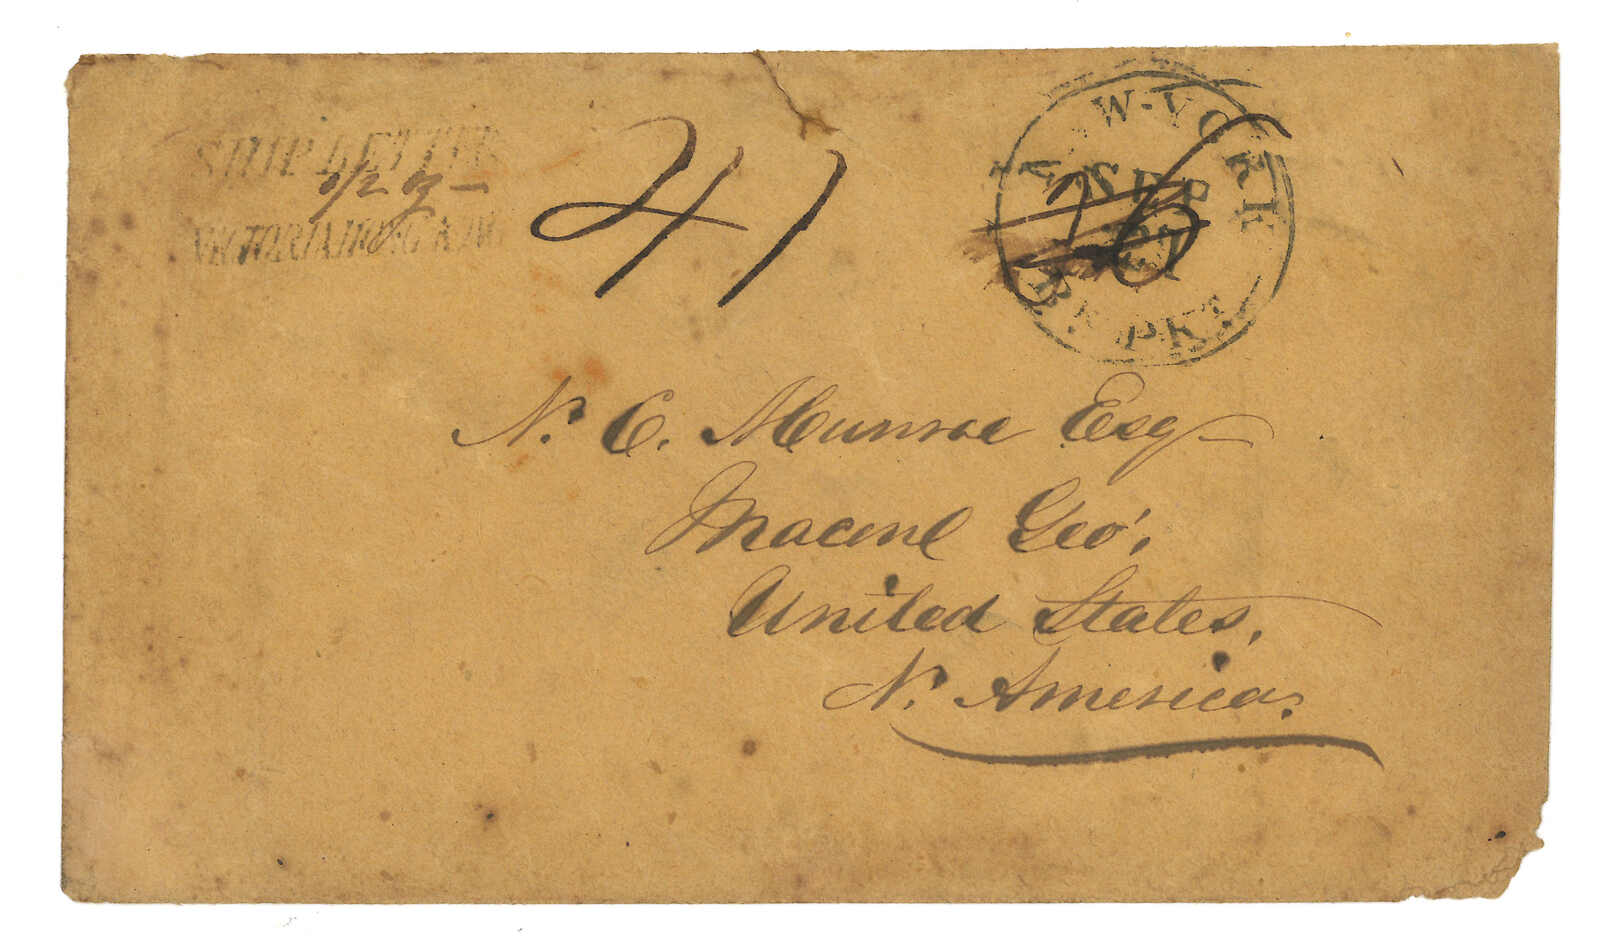 SHIP LETTER
1/2 oz
VICTORIA HONG KONG
41
NEW-YORK
AM
SEP
27
BR. PKT.
N. C. Munroe Esq
Macond Geo',
United States,
N. America.